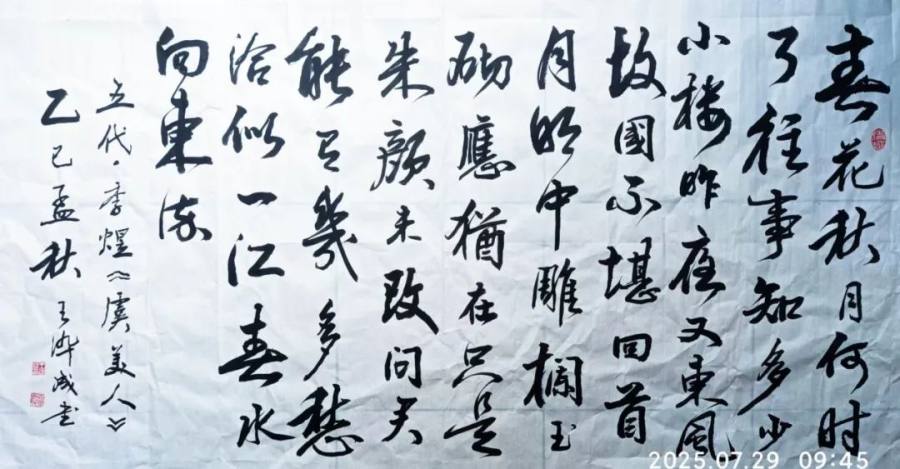 春花秋月何时
了往事知多少
小楼昨夜又東風
故國不堪回首
月明中雕欄玉
砌應猶在只是
朱颜未改问君
能有幾多愁
恰似一江春水
向東流
五代·李煜《虞美人》
乙巳孟秋 王成书
2025.07.29 09:45